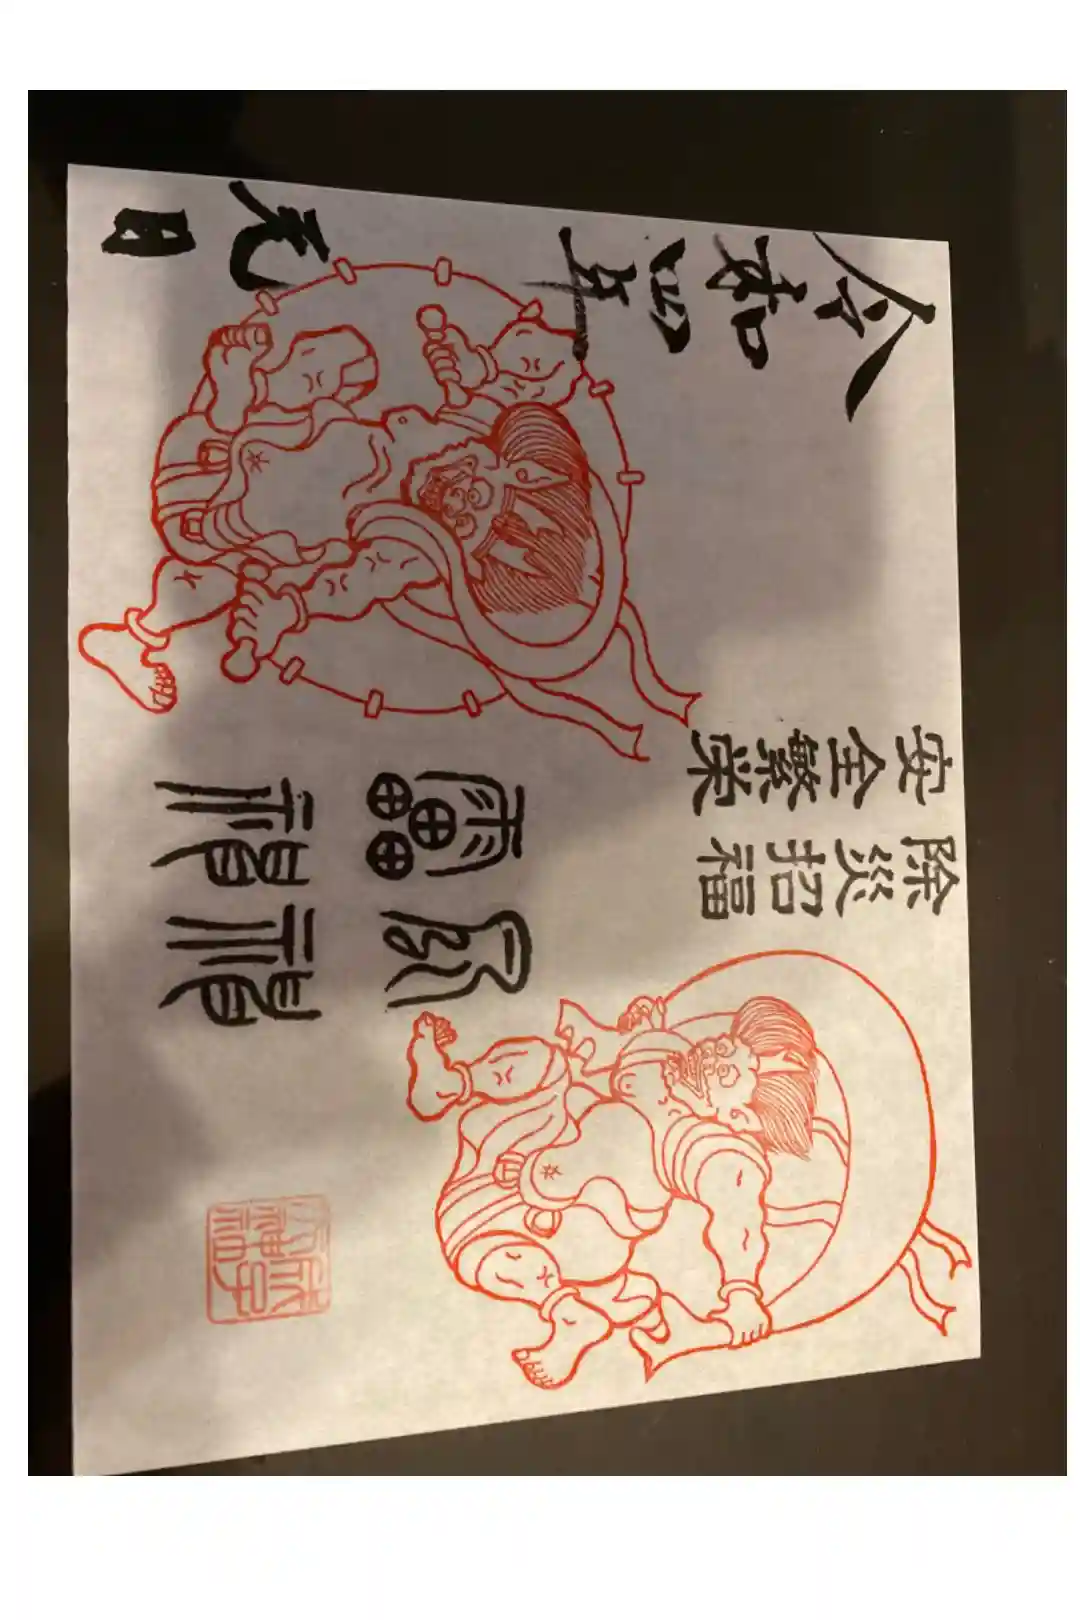 除災招福
安全繁栄
風神
雷神
令和四年元日